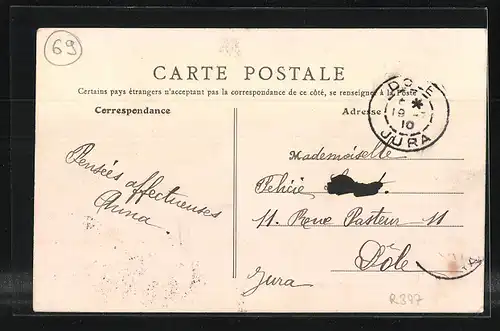 69
CARTE POSTALE
Certains pays étrangers n'acceptant pas la correspondance de ce côté, se renseigner à la Poste
Correspondance
Adresse
DOLE
19
10
JURA
Pensées affectueuses
Anna.
Mademoiselle
Felicie
11. Rue Pasteur 11
Dôle
Jura
R397